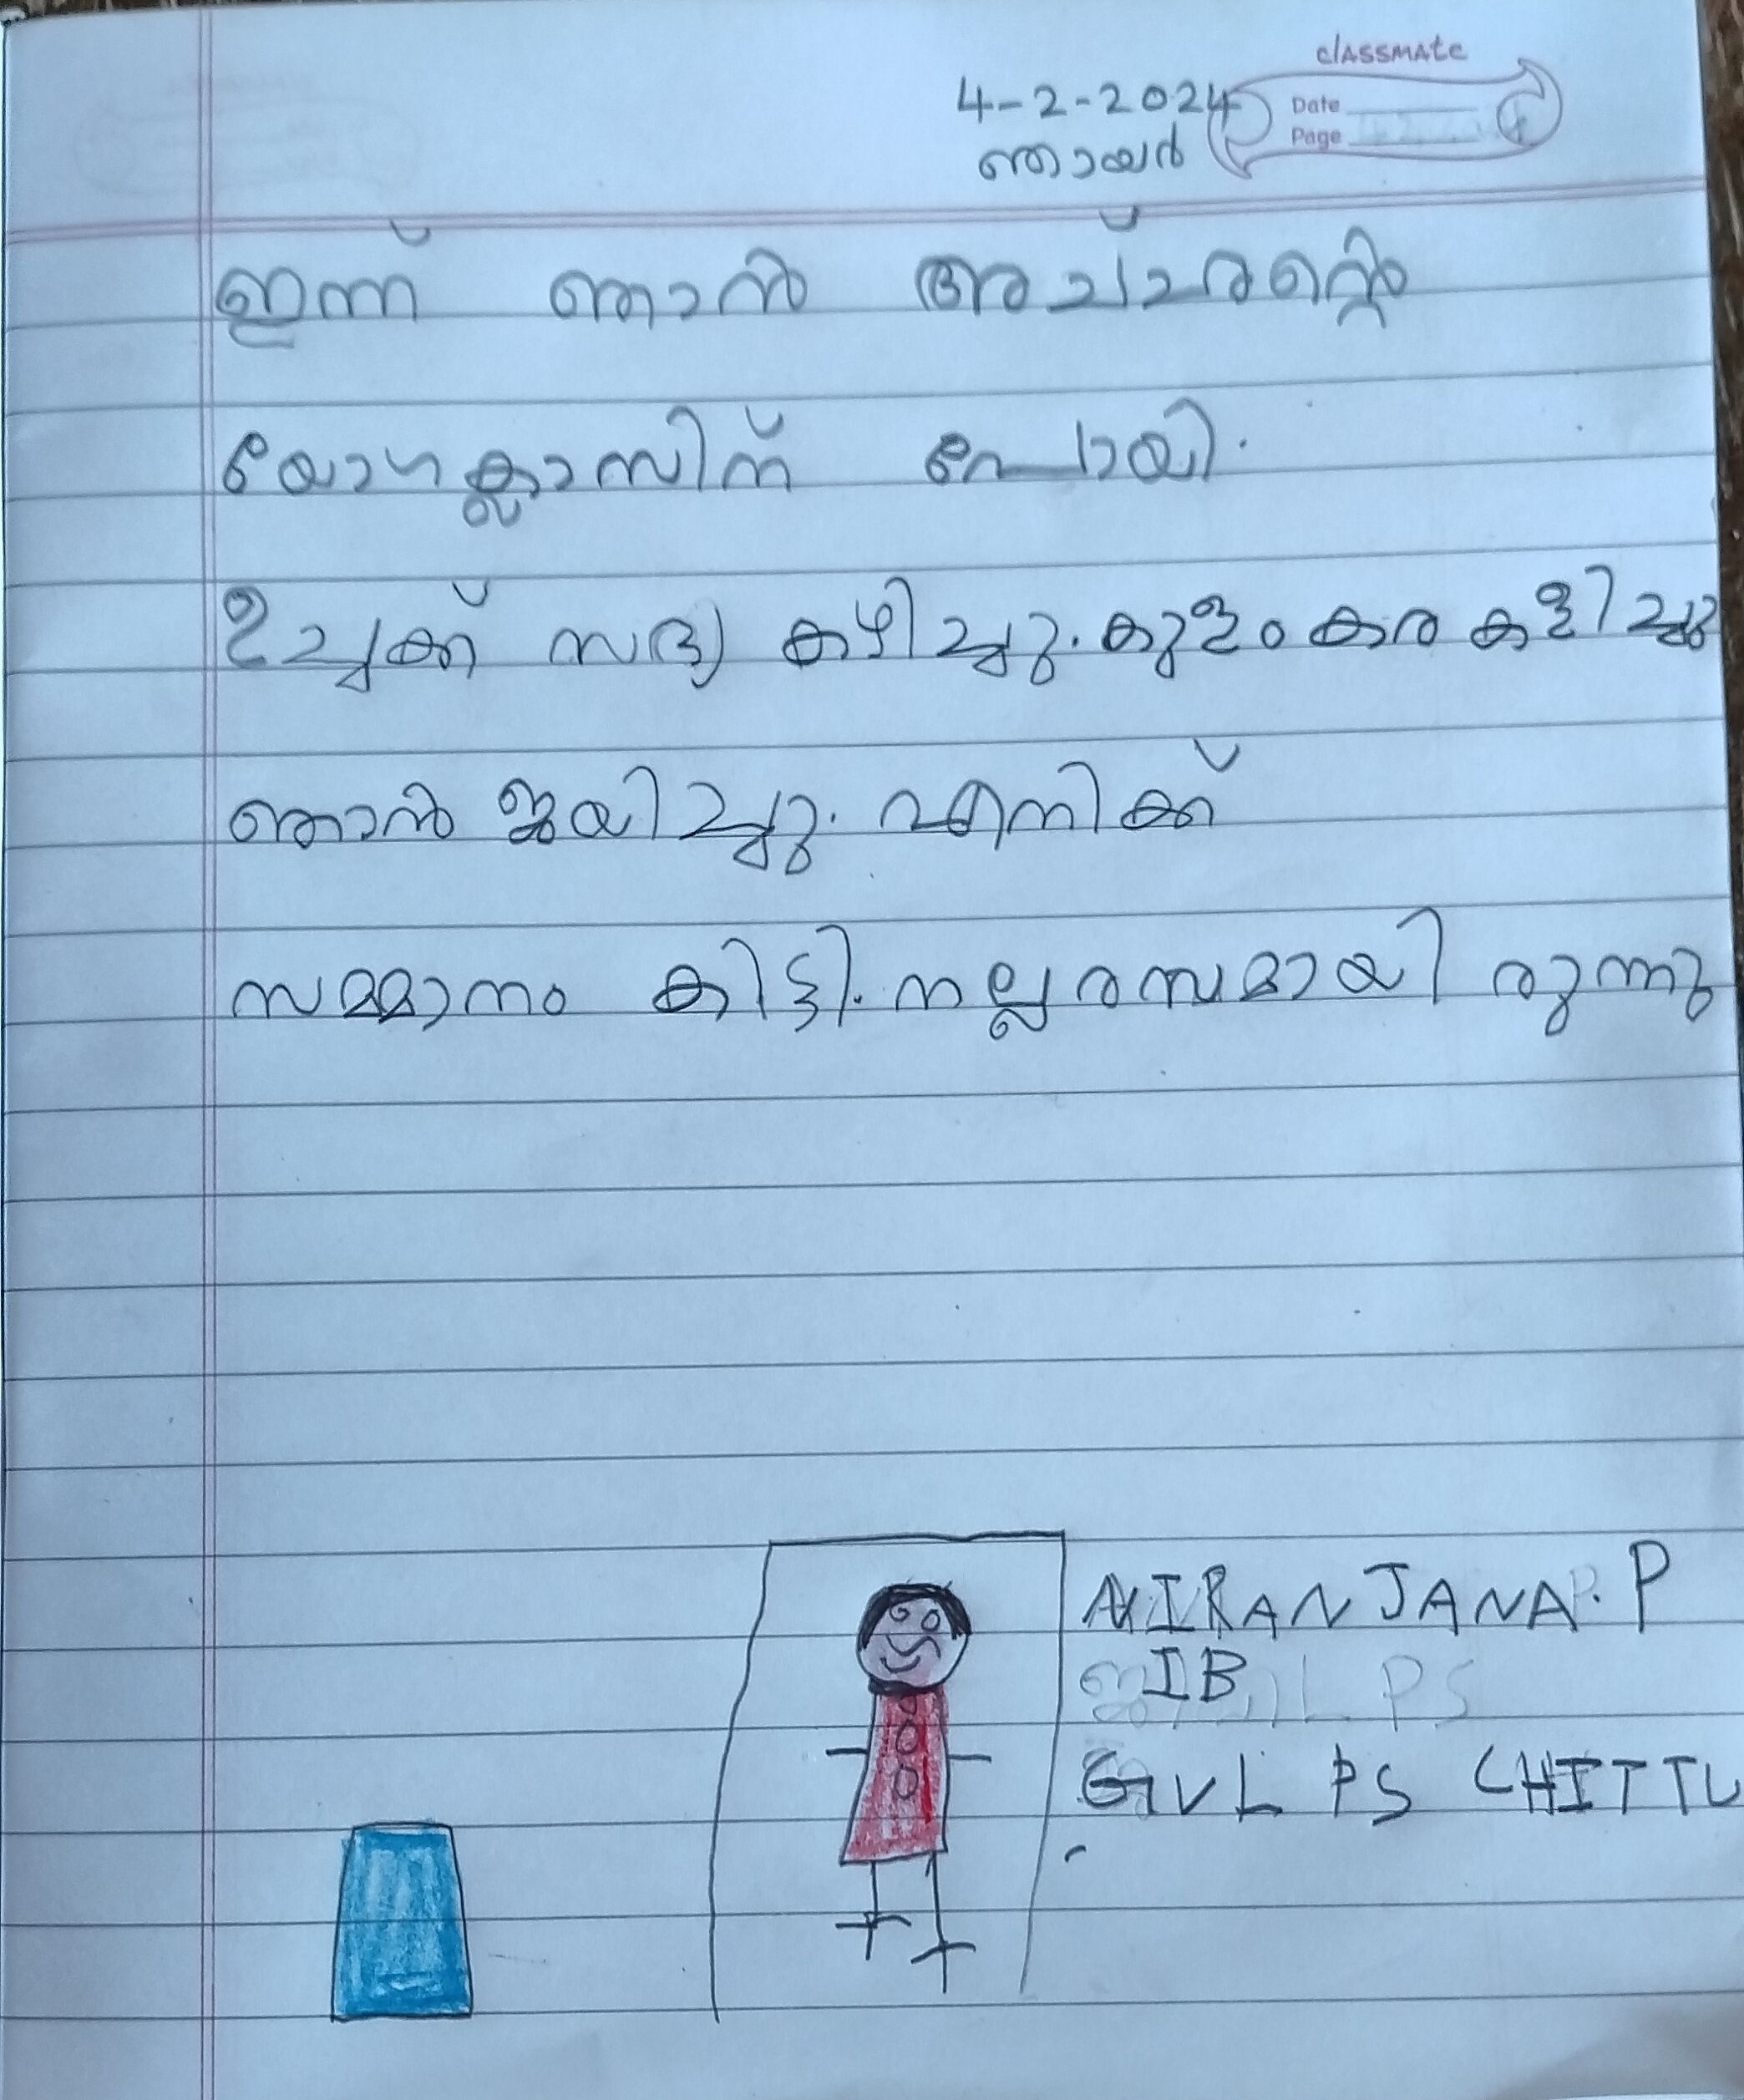 classmate
Date
Page
4-2-2024
ഞായർ
ഇന്ന് ഞാൻ അച്ഛന്റെ
യോഗക്ലാസിന് പോയി.
ഉച്ചക്ക് സദ്യ കഴിച്ചു. കുളം കര കളിച്ചു
ഞാൻ ജയിച്ചു. എനിക്ക്
സമ്മാനം കിട്ടി. നല്ല രസമായി രുന്നു
NIRANJANA. P
IB
GVL PS CHITTU